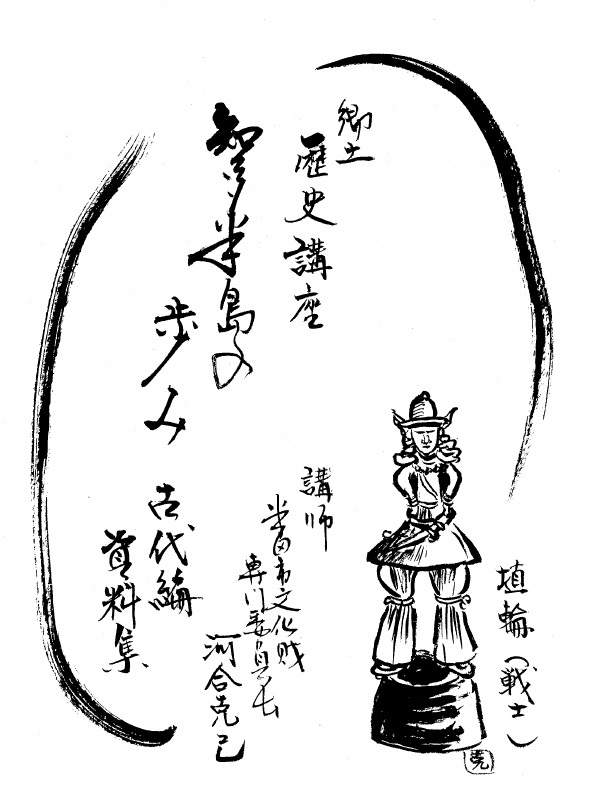 郷土
歴史講座
智多半島の
歩み
古代編
資料集
講師
半田市文化財
専門委員長
河合克己
埴輪(戦士)
克